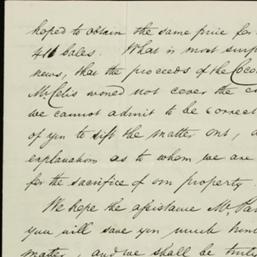 hoped to obtain the same price for
411 bales. What is most surp
news, that the proceeds of the Coco
McCelis would not cover the
we cannot admit to be correct
of you to sift the matter out, a
explanation as to whom we are
for the sacrifice of our property.
We hope the assistance Mr. Par
you will save you much
matter, and we shall be truly